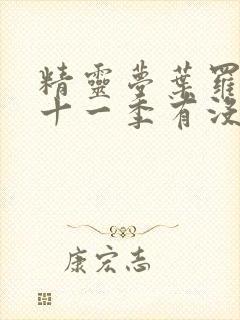 精靈夢葉羅
十一季有沒
康宏志